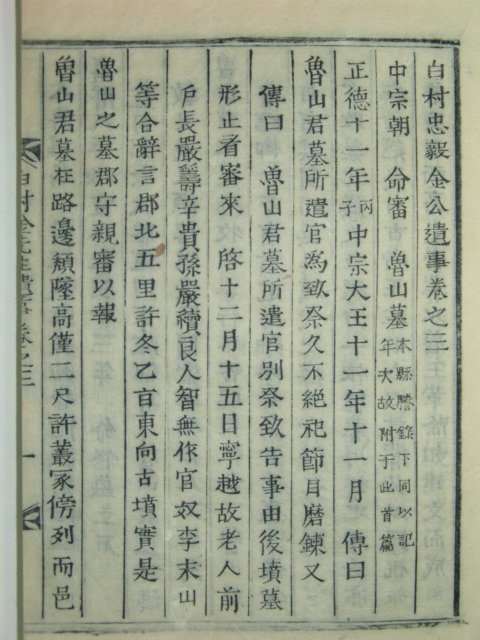 白村忠毅金公遺事卷之三
中宗朝 命審 魯山墓 本縣謄錄下同以記年次故附于此首篇
正德十一年丙子中宗大王十一年十一月 傳曰
魯山君墓所遣官爲致奈久不絶祀節目磨鍊又
傳曰 魯山君墓所遣官別祭致告事由後墳墓
形止看審來 啓十二月十五日寧越故老人前
戶長嚴籌辛貴孫嚴續良人智無作官奴李末山
等合辭言郡北五里許冬乙旨東向古墳實是
魯山之墓郡守親審以報
魯山君墓在路邊頹墮高僅二尺許叢冢傍列而邑